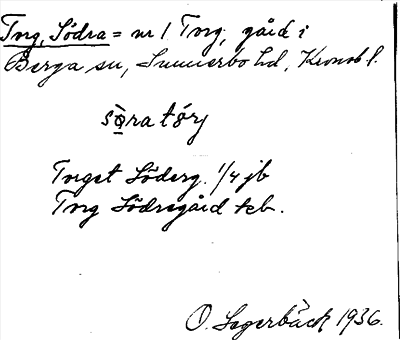 Torg, Södra = nr 1 Torg, gård i
Berga sn, Sunnerbo hd, Kronob l.
sö̀ra tórj
Torget Söderg. 1/4 jb
Torg Södregård kb.
O. Lagerbäck 1936.